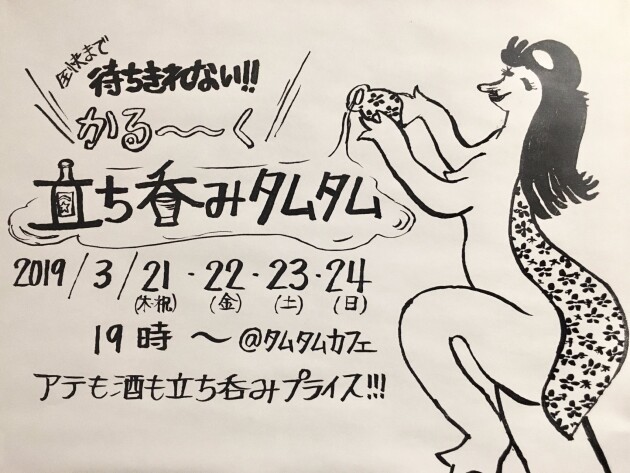 全快まで
待ちきれない!!
かる〜く
立ち呑みタムタム
2019/3/21・22・23・24
(木・祝) (金) (土) (日)
19時 〜 @タムタムカフェ
アテも酒も立ち呑みプライス!!!